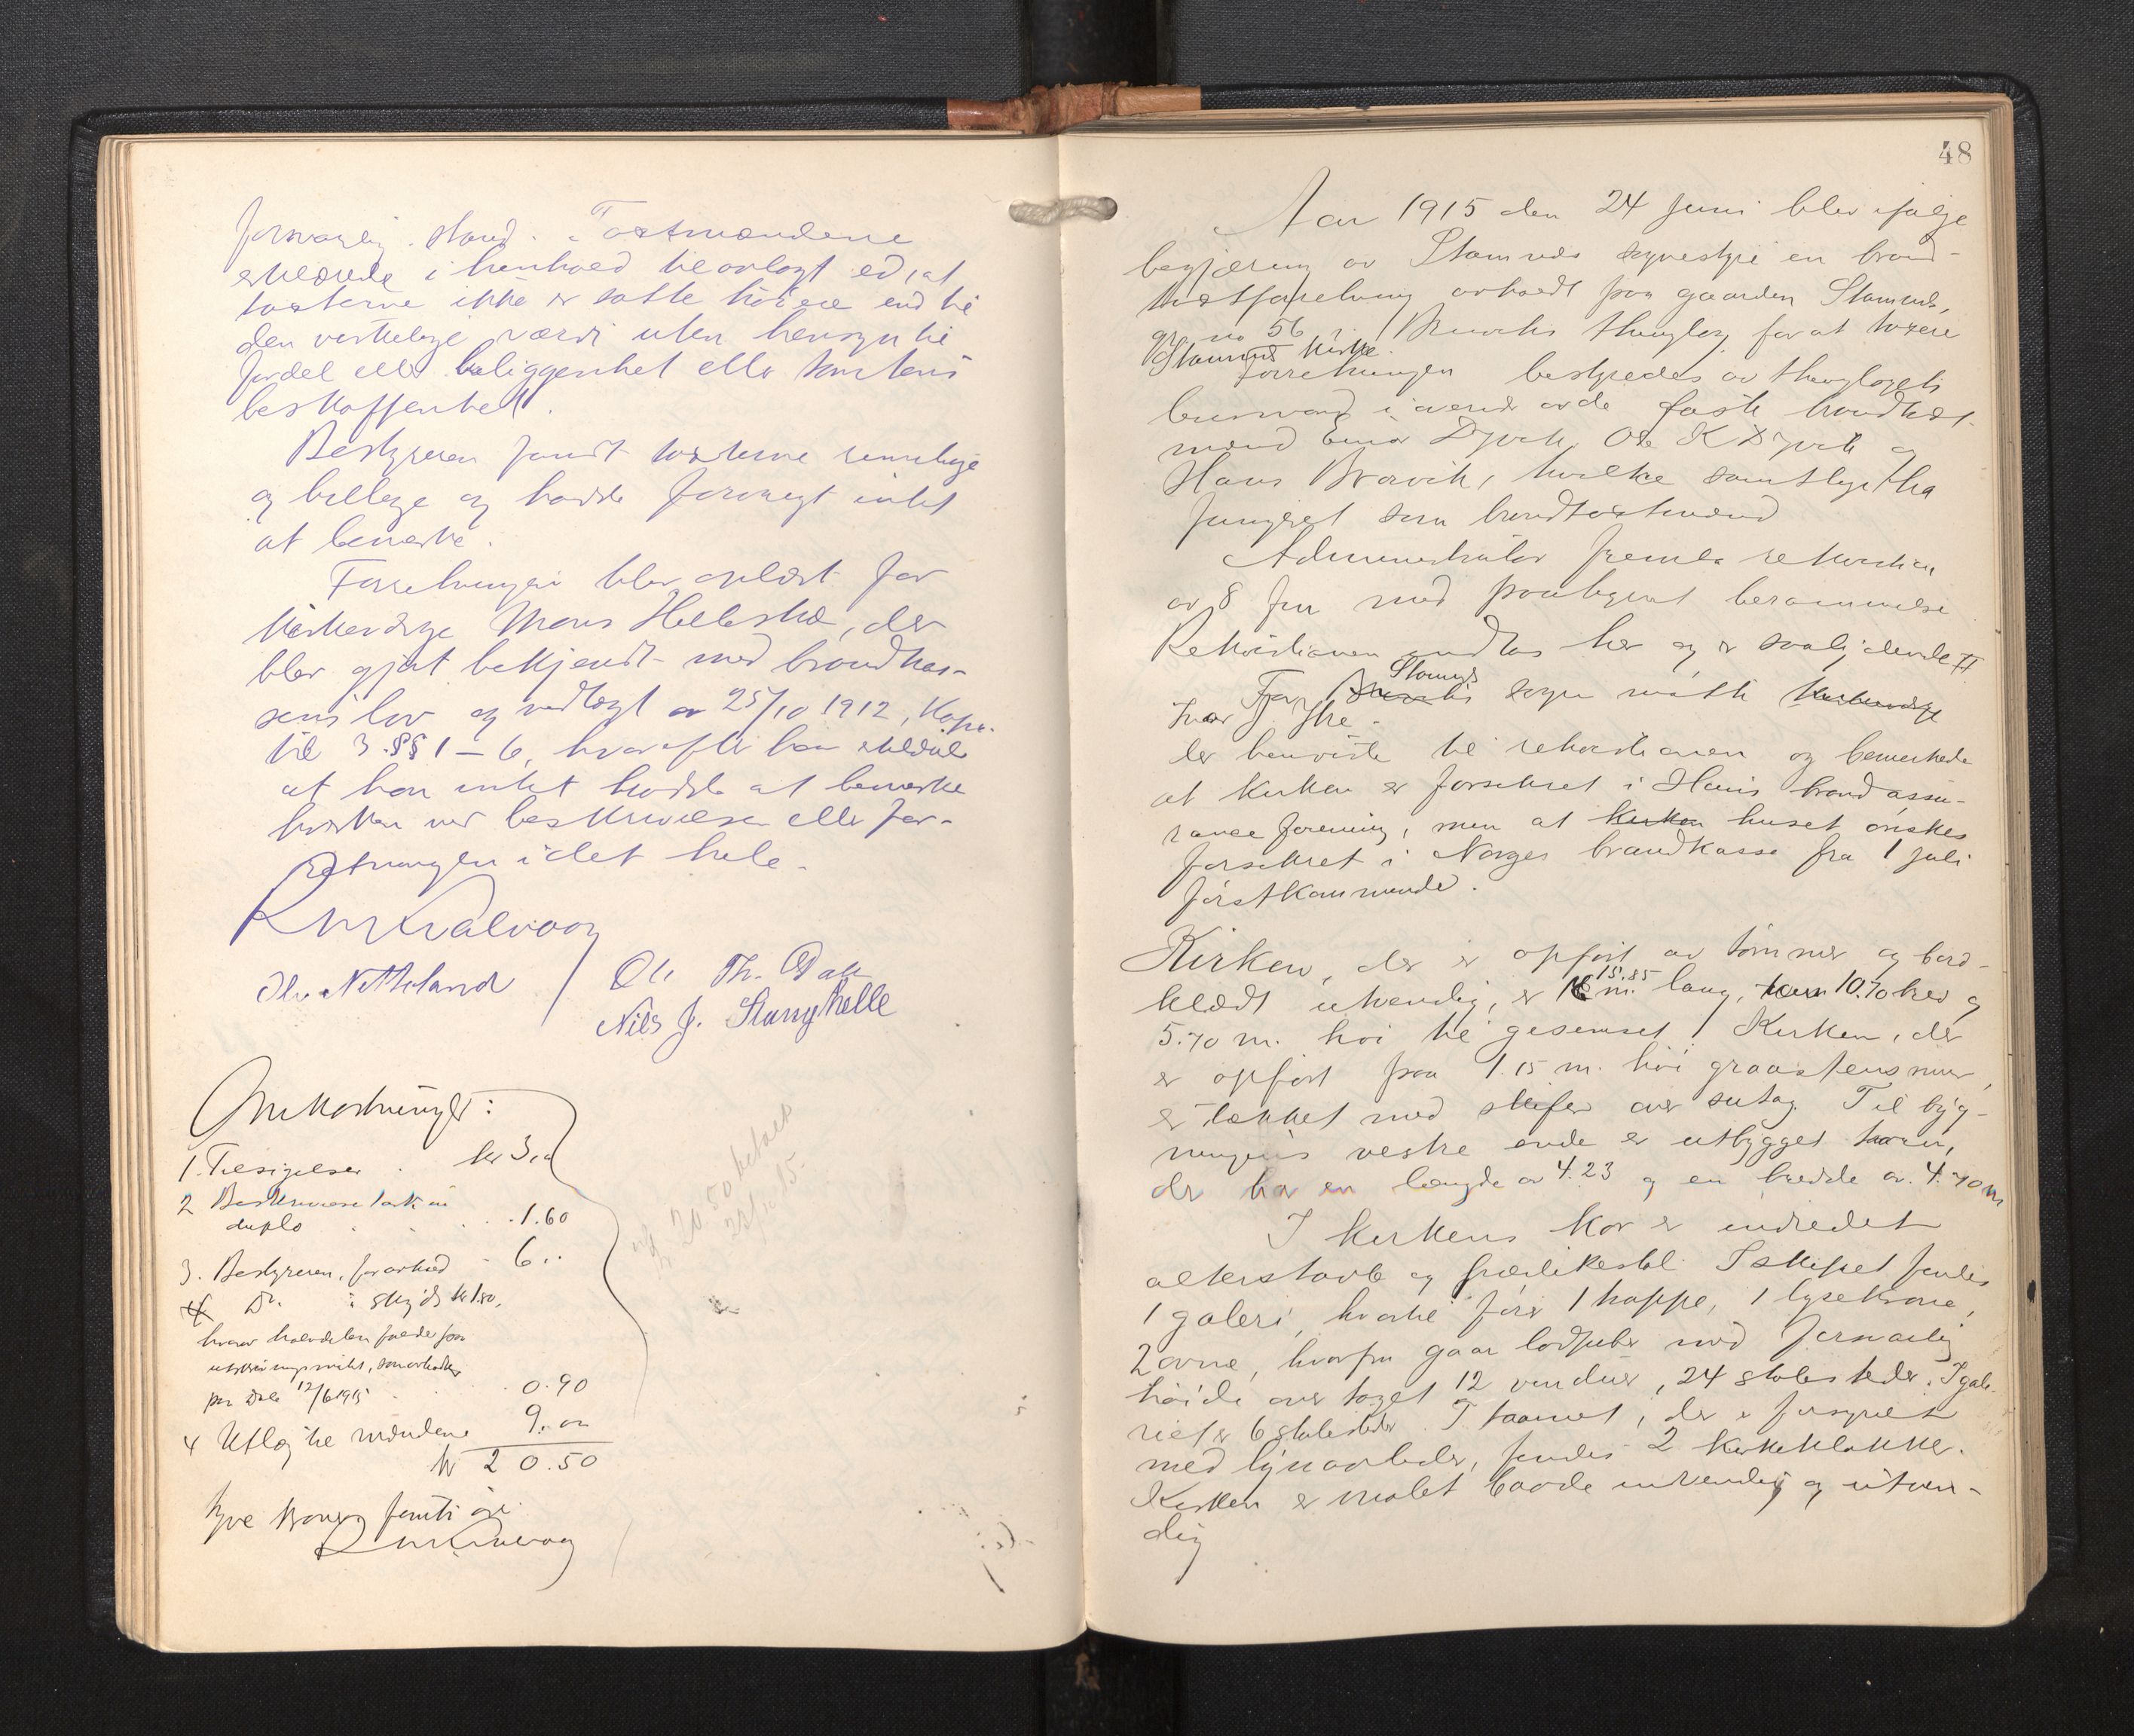 forsvarlig stand. Takstmændene
erklærede i henhold til avlagt ed, at
taksterne ikke er satte høiere end til
den virkelige værdi uten hensyn til
fordel eller beliggenhet eller tomtens
beskaffenhet.
Bestyreren fandt taksterne rimelige
og billige og hadde forøvrigt intet
at bemerke.
Forretningen blev oplæst for
kirkeverge Mons Helleskoe, der
blev gjort bekjendt med brandkas-
sens lov og vedtægt av 25/10 1912, Kapi-
til 3 §§ 1-6, hvorefter han erklærte
at han intet hadde at bemerke
hverken ved beskrivelsen eller for-
retningen i det hele.
Ole Th. Dale
Nils J. Stanghelle
Omkostninger:
1. Tilsigelser kr 3.00
2 Beskrivelse takst in
duplo 1.60
3. Bestyreren, for arbeid 6.-
4 Do. i skyds kr 1.80,
hvorav halvdelen falder paa
per Dale 12/6 1915 0.90
4 Utlæg til mændene 9.00
kr 20.50
tyve kroner femti øre
kr 20.50 betalt
48
Aar 1915 den 24 Juni blev ifølge
begjæring av Stamnes sognestyre en brand-
takstforretning avholdt paa gaarden Stamnes,
gr. no 56 i Bruviks thinglag for at taksere
Stamnes kirke.
Forretningen bestyredes av thinglagets
lensmand i nærvær av de faste brandtakst-
mænd Einar Dyvik, Ole K Dyvik og
Hans Bravik, hvilke samtlige har
fungeret som brandtakstmænd
Administrator fremla rekvisition
av 8 Juni med paategnet berammelse
Rekvisitionen indtas her og er saalydende #
For Bruviks Stamnes sogn møtte kirkeverge
Ivar J. Ihre.
der henviste til rekvisitionen og bemerkede
at kirken er forsikret i Hans brandassu-
ranceforening, men at kirken huset ønskes
forsikret i Norges brandkasse fra 1 juli
førstkommende.
Kirken, der er opført av tømmer og bord-
klædt utvendig, er 15.85 m. lang, 10.70 bred og
5.70 m. høi til gesimset. Kirken, der
er opført paa 1.15 m. høi graastensmur,
er tækket med skifer over sutag. Til byg-
ningens vestre ende er utbygget taarn,
der har en længde av 4.23 og en bredde av 4.70 m
I kirkens kor er indredet
altertavle og prædikestol. I skipet findes
1 galeri, hvortil fører 1 trappe, 1 lysekrone,
2 ovne, hvorfra gaar lodpiber med forsvarlig
høide over taget 12 vinduer, 24 stolesteder. I gale-
riet er 6 stolesteder. I taarnet, der er forsynet
med lynavleder, findes 2 kirkeklokker.
Kirken er malet baade indvendig og utven-
dig